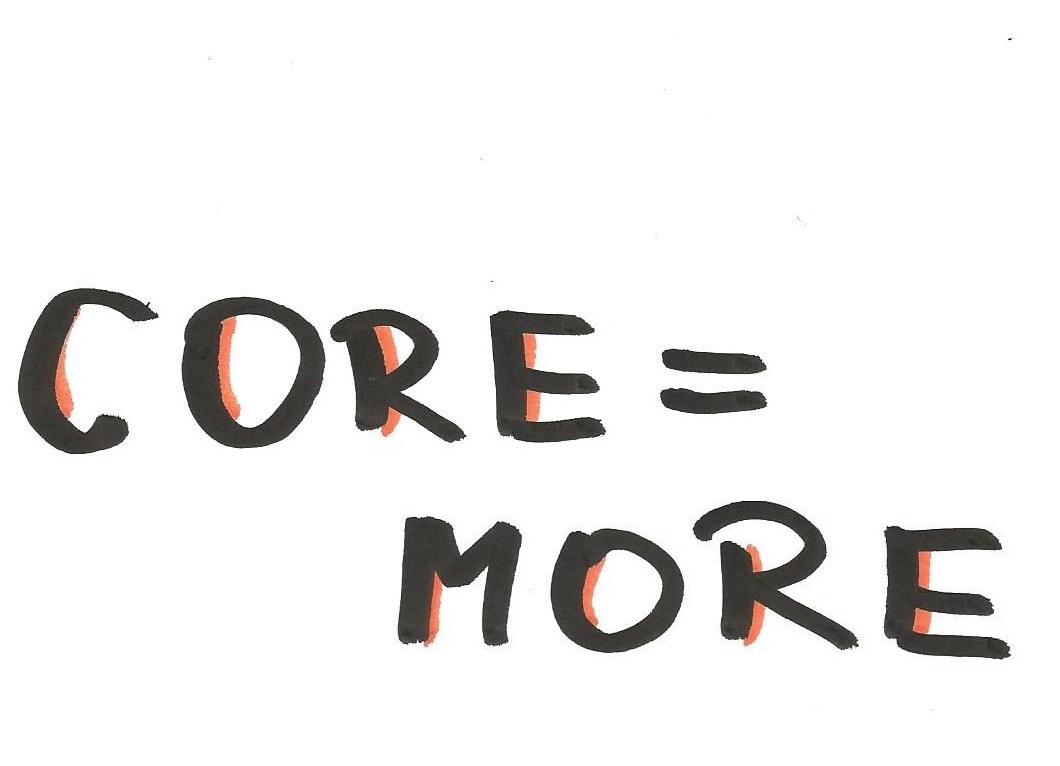 CORE =
MORE